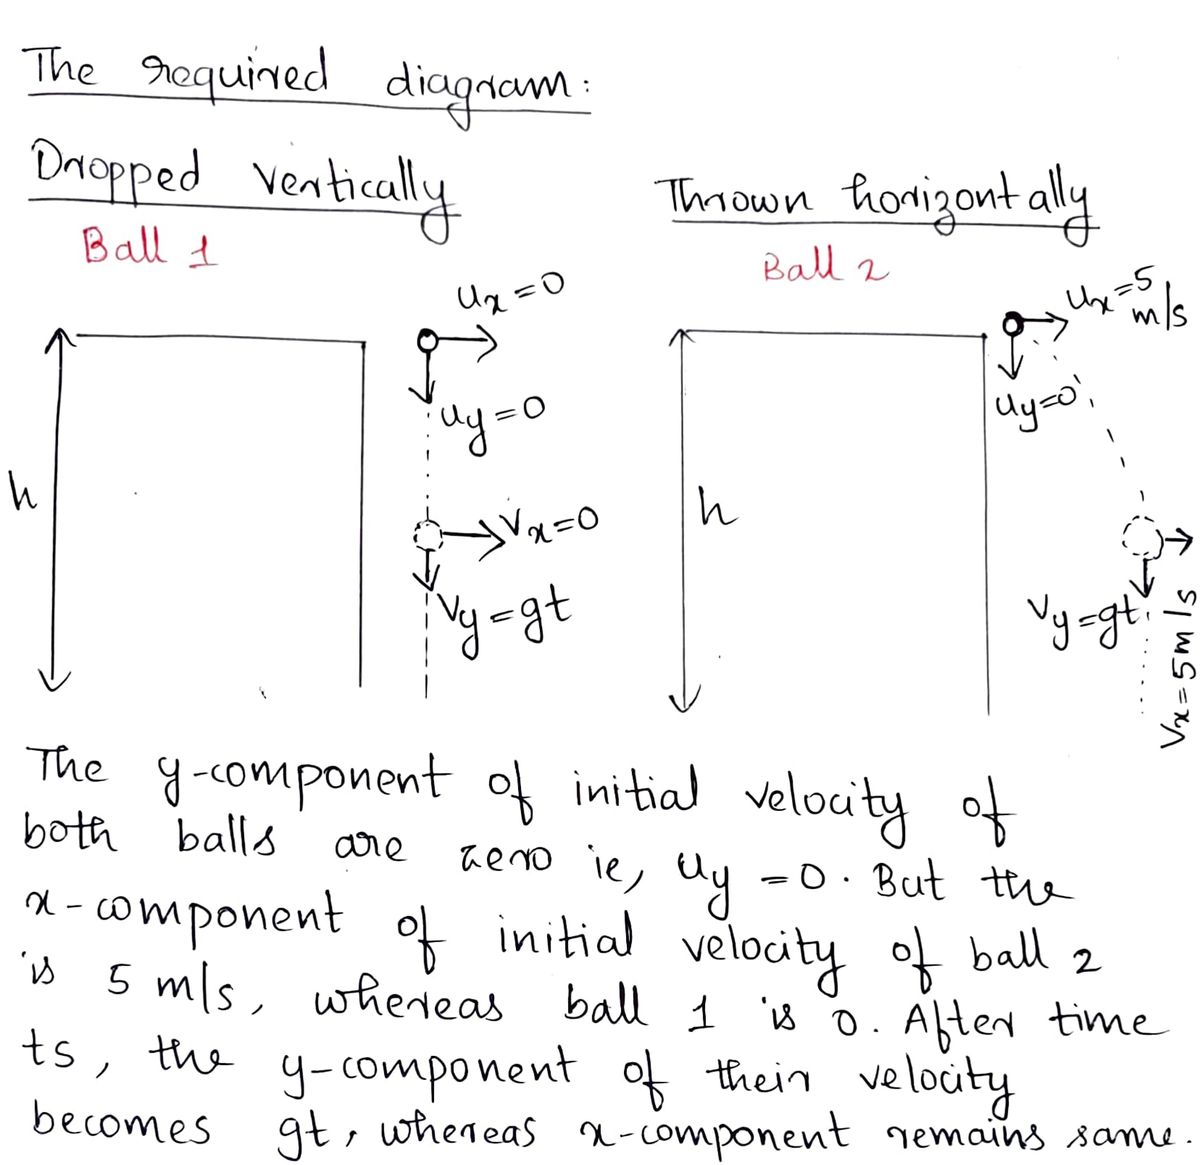 The required diagram:
Dropped vertically
Thrown horizontally
Ball 1
Ball 2
ux=0
ux=5 m/s
uy=0
uy=0
h
h
vx=0
vy=gt
vy=gt
vx=5m/s
The y-component of initial velocity of
both balls are zero ie, uy=0. But the
x-component of initial velocity of ball 2
is 5 m/s, whereas ball 1 is 0. After time
ts, the y-component of their velocity
becomes gt, whereas x-component remains same.